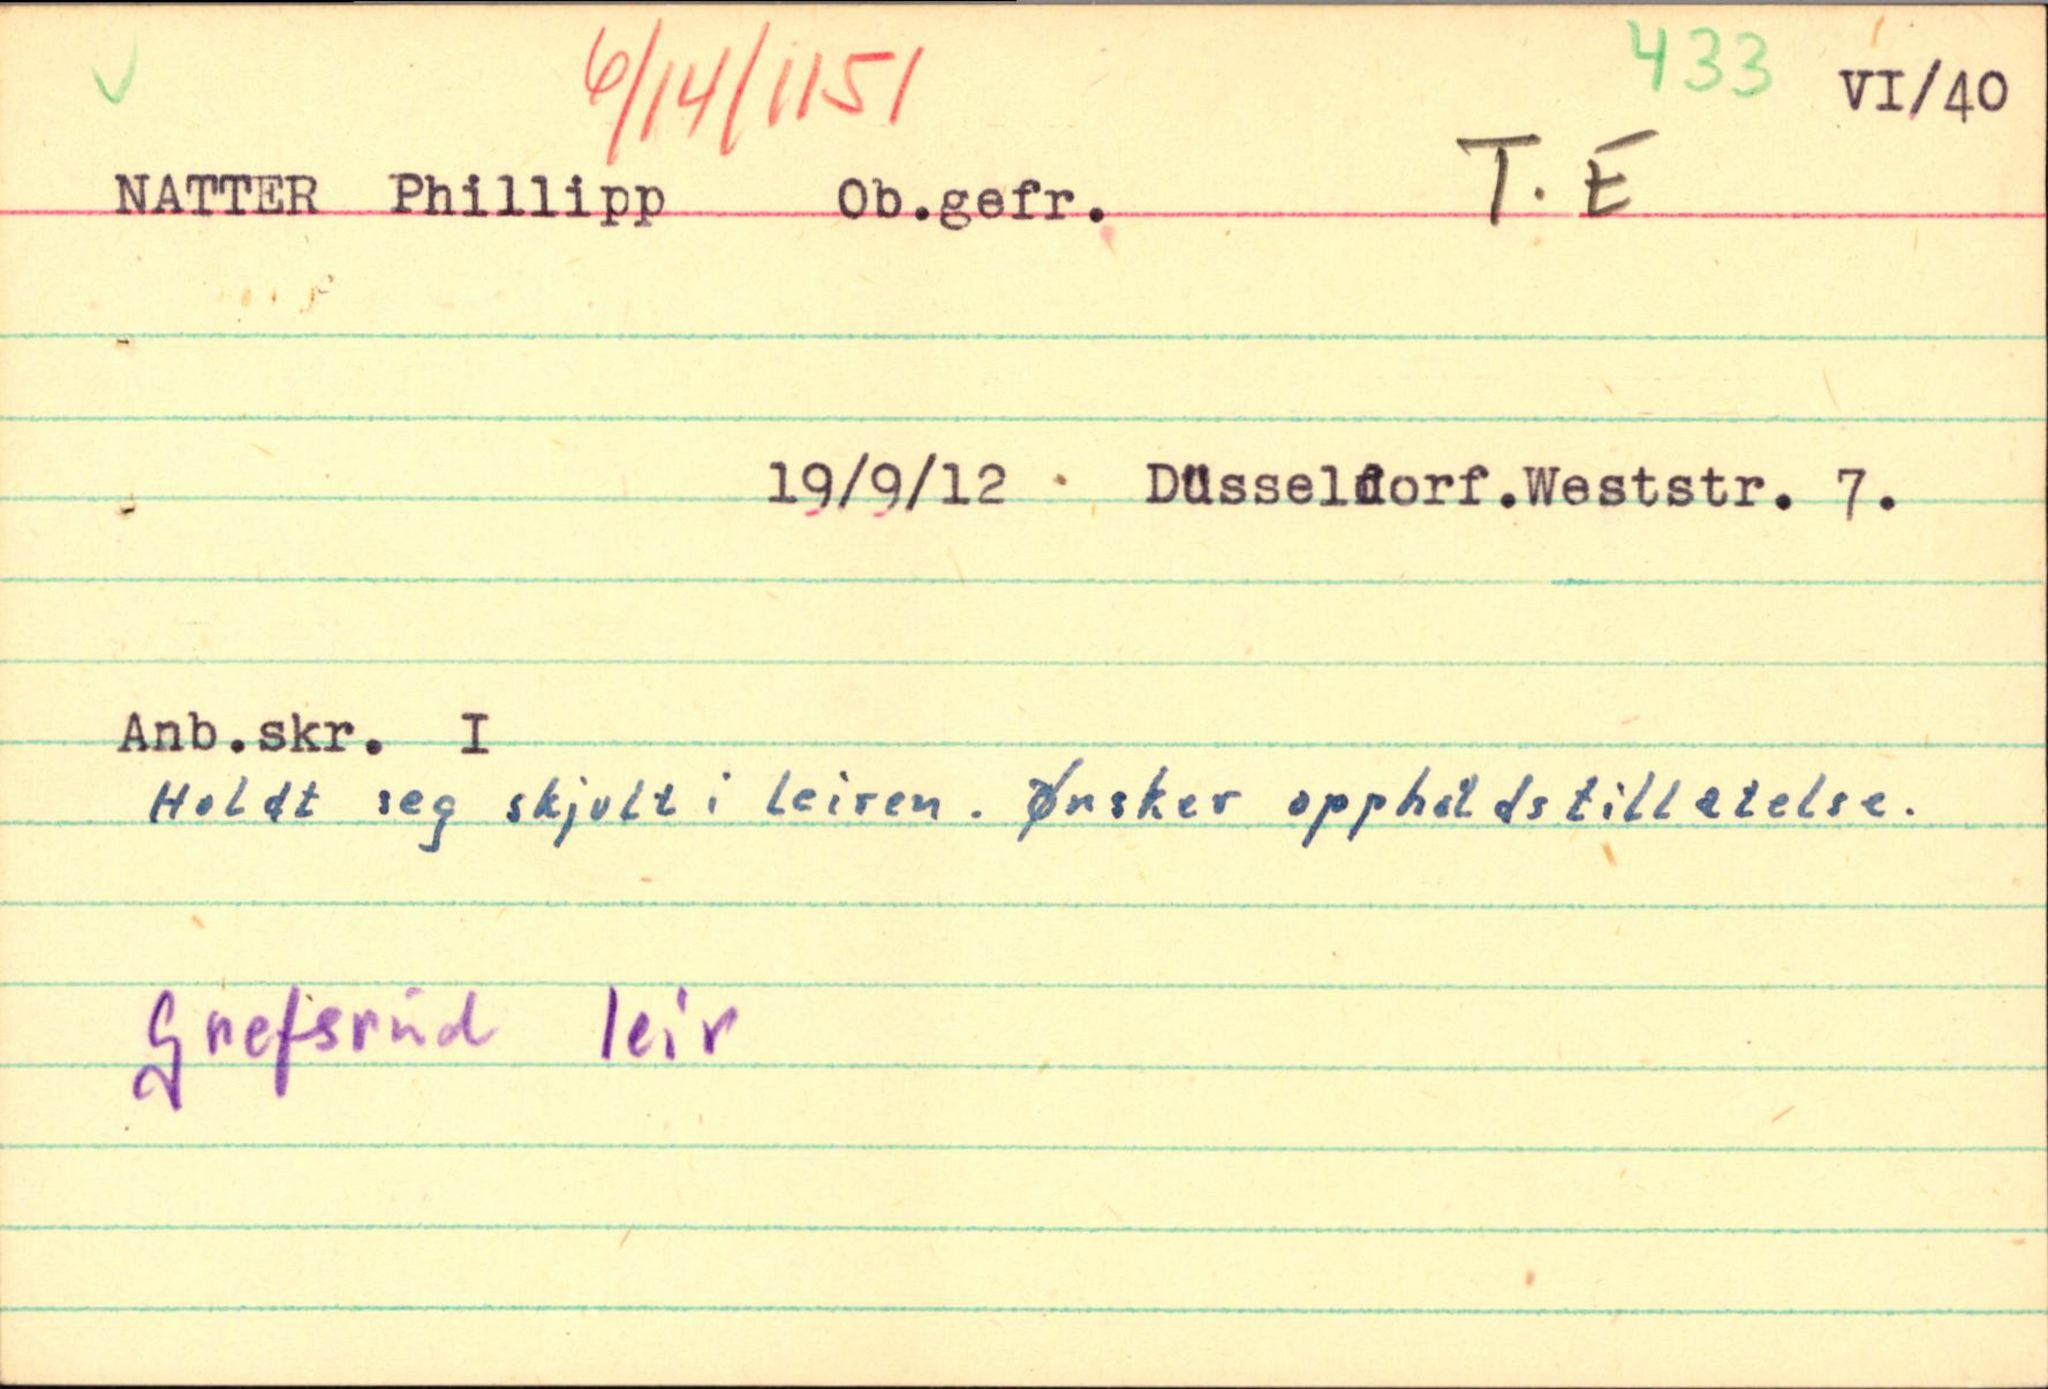 6/14/1151 433 VI/40
NATTER Phillipp Ob.gefr. T. E
19/9/12 Düsseldorf.Weststr. 7.
Anb.skr. I
Holdt seg skjult i leiren. Ønsker oppholdstillatelse.
Grefsrud leir